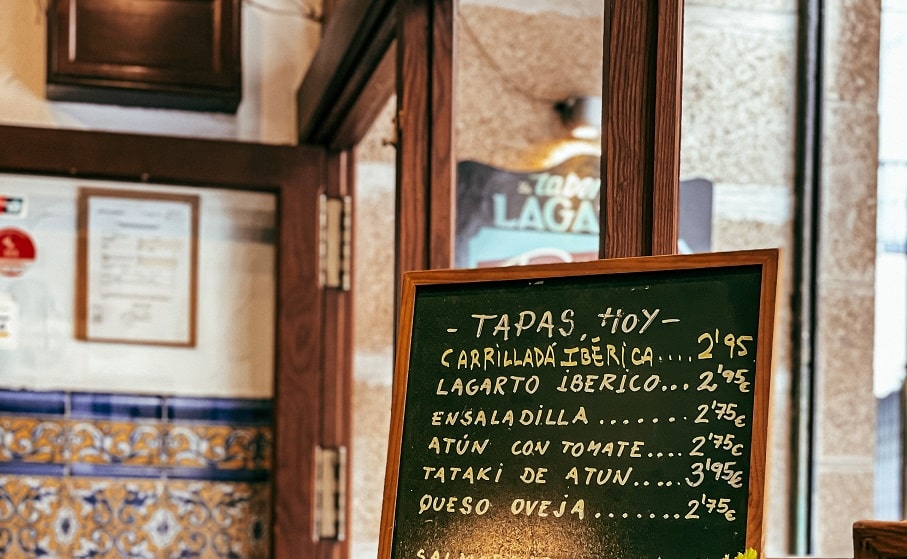 LAGA
- TAPAS, HOY -
CARRILLADA IBÉRICA.... 2'95
LAGARTO IBERICO... 2'95€
ENSALADILLA ....... 2'75€
ATÚN CON TOMATE.... 2'75€
TATAKI DE ATUN..... 3'95€
QUESO OVEJA ....... 2'75€